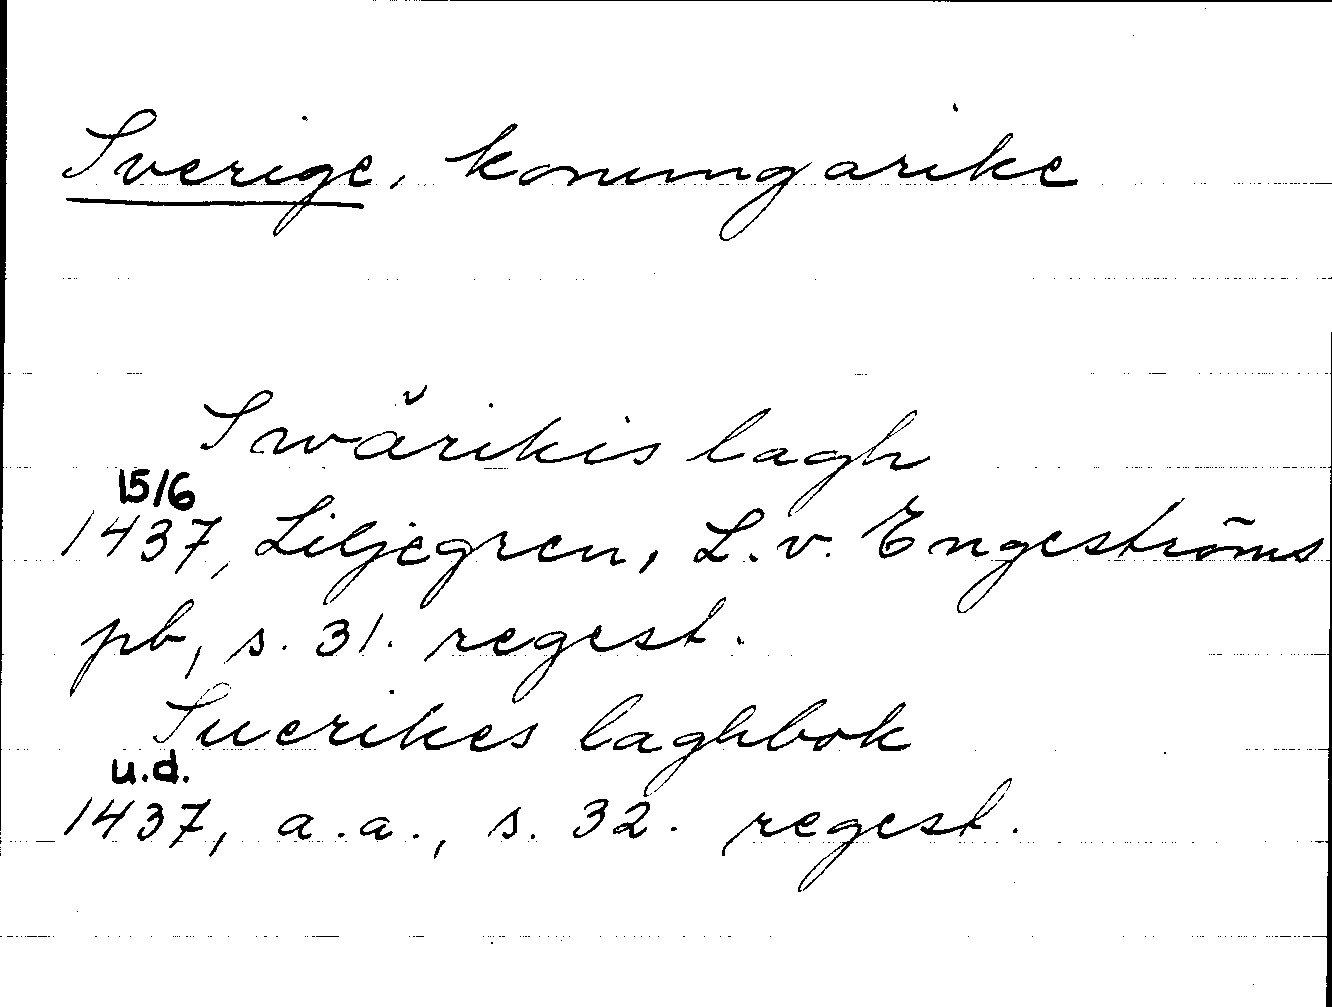 Sverige, konungarike
Swärikis lagh
15/6
1437, Liljegren, L. v. Engeströms
pb, s. 31. regest.
Suerikes laghbok
u.d.
1437, a.a., s. 32. regest.